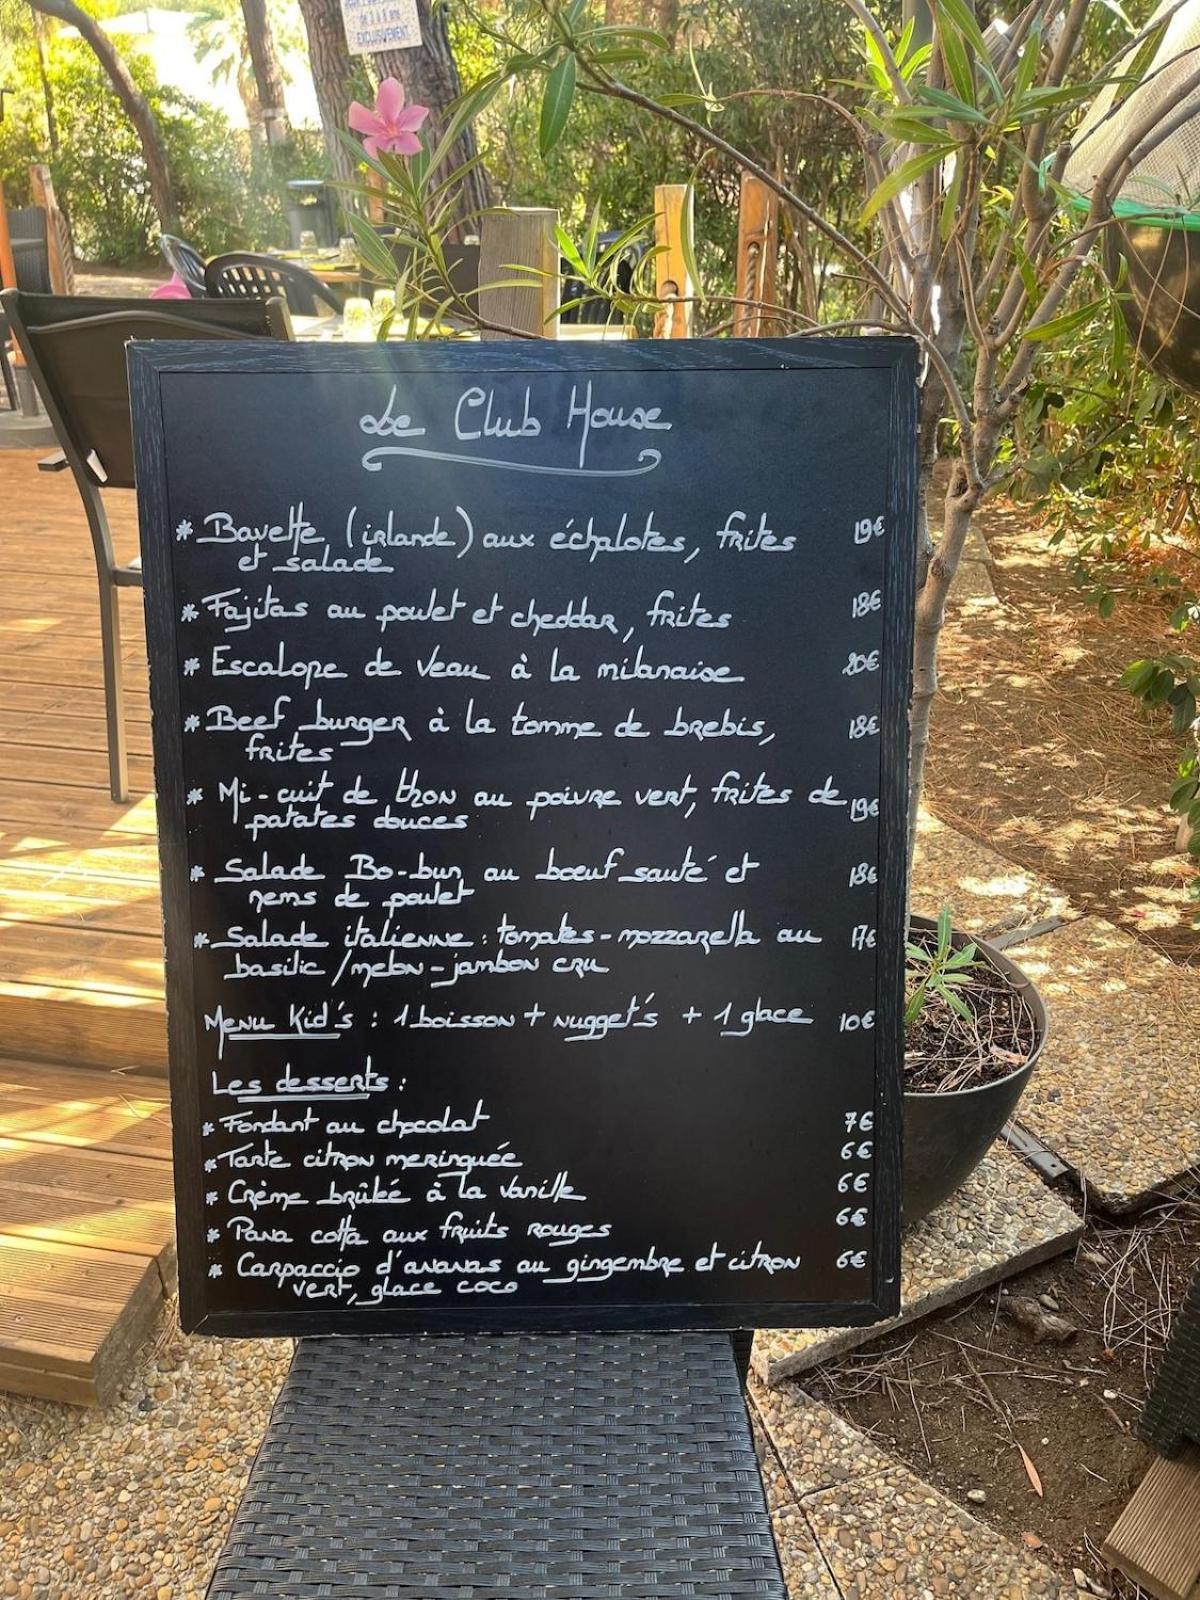 EXCLUSIVEMENT
Le Club House
* Bavette (irlande) aux échalotes, frites 19€
et salade
* Fajitas au poulet et cheddar, frites 18€
* Escalope de veau à la milanaise 20€
* Beef burger à la tomme de brebis, 18€
frites
* Mi-cuit de thon au poivre vert, frites de 19€
patates douces
* Salade Bo-bun au boeuf sauté et 18€
nems de poulet
* Salade italienne : tomates-mozzarella au 17€
basilic / melon-jambon cru
Menu Kid's : 1 boisson + nugget's + 1 glace 10€
Les desserts :
* Fondant au chocolat 7€
* Tarte citron meringuée 6€
* Crème brûlée à la vanille 6€
* Pana cotta aux fruits rouges 6€
* Carpaccio d'ananas au gingembre et citron 6€
vert, glace coco